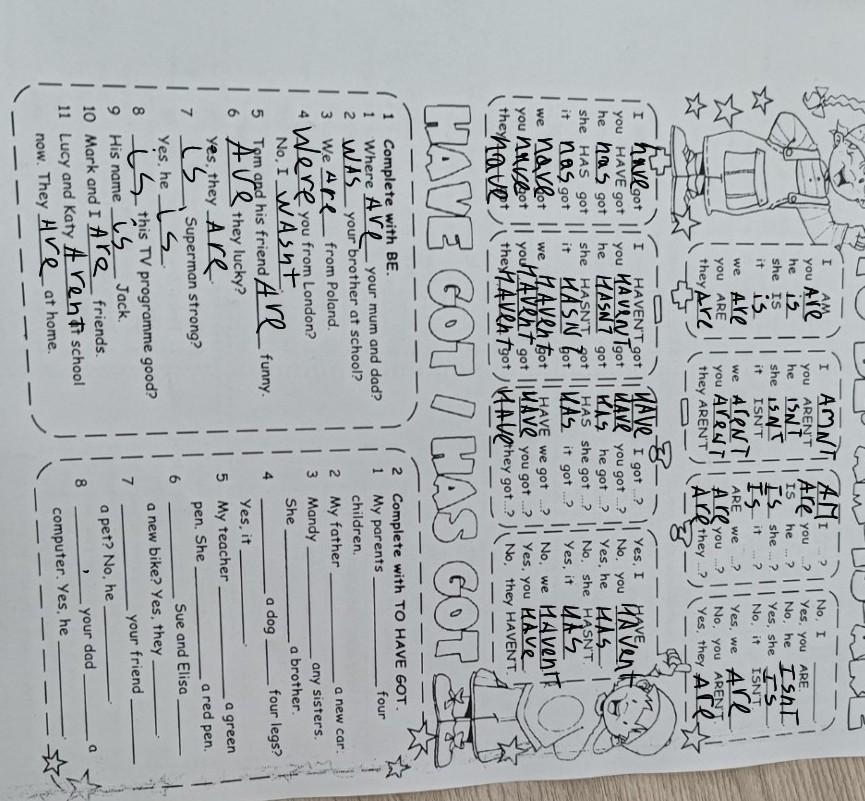 I AM
you Are
he is
she IS
it is
we Are
you ARE
they Are
I AMNT
you AREN'T
he ISNT
she ISNT
it ISN'T
we ArenT
you ArenT
they AREN'T
AM I ...?
Are you ...?
IS he ...?
Is she ...?
Is it ...?
ARE we ...?
Are you ...?
Are they ...?
No, I
Yes, you ARE
No, he IsnT
Yes, she Is
No, it ISN'T
Yes, we Are
No, you AREN'T
Yes, they Are
I have got
you HAVE got
he has got
she HAS got
it has got
we have got
you have got
they have got
I HAVEN'T got
you HAvenT got
he HASNT got
she HASN'T got
it HASNT got
we HAVEnt got
you HAVEnt got
they HAVEnt got
HAVE I got ...?
HAVE you got ...?
HAS he got ...?
HAS she got ...?
HAS it got ...?
HAVE we got ...?
HAVE you got ...?
HAVE they got ...?
Yes, I HAVE
No, you HAvent
Yes, he HAS
No, she HASN'T
Yes, it HAS
No, we HAvenT
Yes, you HAve
No, they HAVEN'T.
HAVE GOT / HAS GOT
1 Complete with BE.
1 Where Are your mum and dad?
2 WAS your brother at school?
3 We Are from Poland.
4 Were you from London?
No, I WAsnt
5 Tom and his friend Are funny.
6 Are they lucky?
Yes, they Are.
7 Is Superman strong?
Yes, he is.
8 Is this TV programme good?
9 His name is Jack.
10 Mark and I Are friends.
11 Lucy and Katy Arent at school
now. They Are at home.
2 Complete with TO HAVE GOT.
1 My parents ______ four
children.
2 My father ______ a new car.
3 Mandy ______ any sisters.
She ______ a brother.
4 ______ a dog ______ four legs?
Yes, it ______.
5 My teacher ______ a green
pen. She ______ a red pen.
6 ______ Sue and Elisa ______
a new bike? Yes, they ______.
7 ______ your friend ______
a pet? No, he ______.
8 ______ your dad ______ a
computer. Yes, he ______.